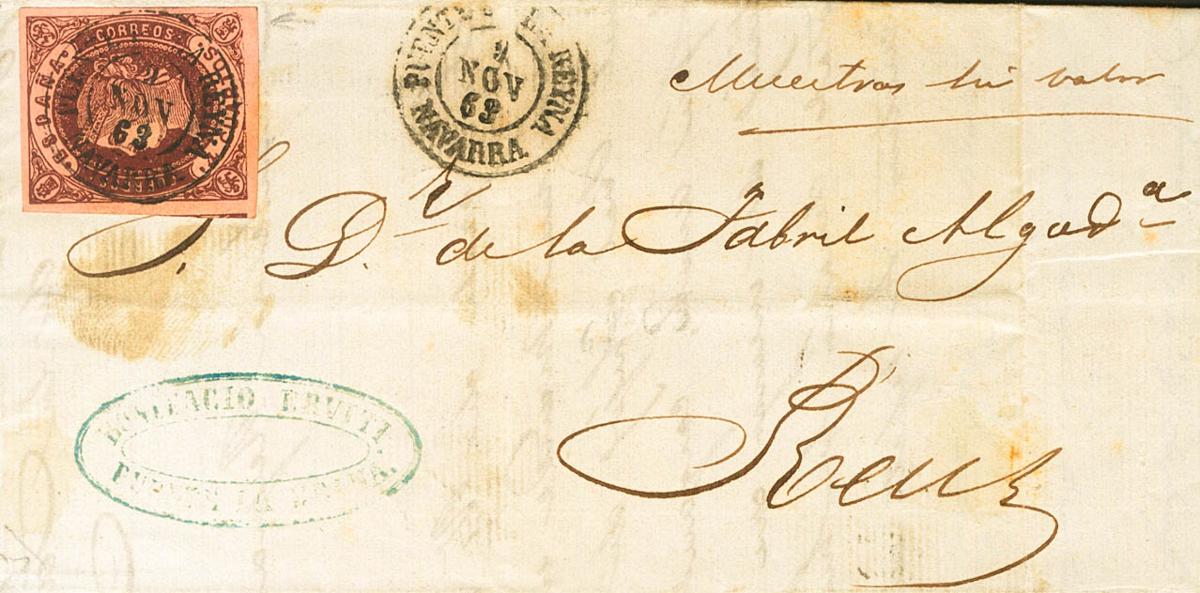 CORREOS
ESPAÑA
NOV
63
NAVARRA
PUENTE LA REYNA
2
NOV
63
NAVARRA
Muestras sin valor
S. Dr. de la Fabril Algoda
Reus
BONIFACIO ERVITI.
PUENTE LA REINA.